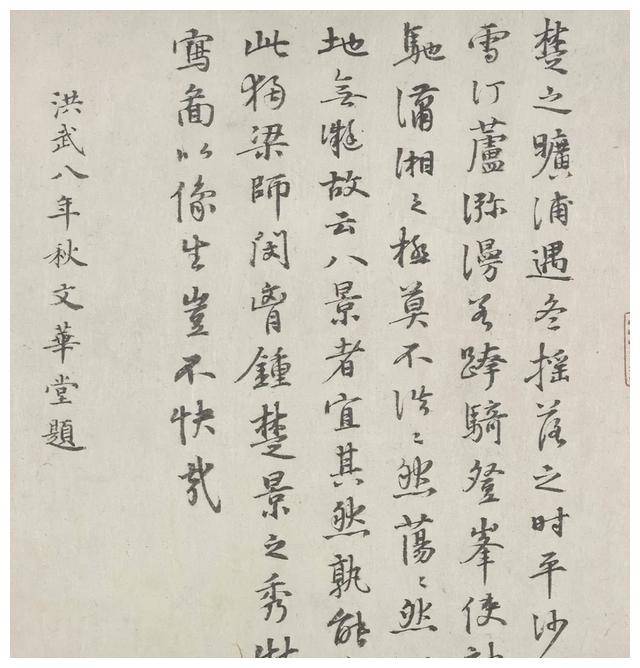 楚之曠浦遇冬揺落之时平沙
雪汀蘆㳽漫若跨騎登峯使
馳瀟湘之極莫不浩〻然蕩〻然
地無凝故云八景者宜其然孰能
此獨梁師閔胷鍾楚景之秀
寫啚以像生豈不快哉
洪武八年秋文華堂題